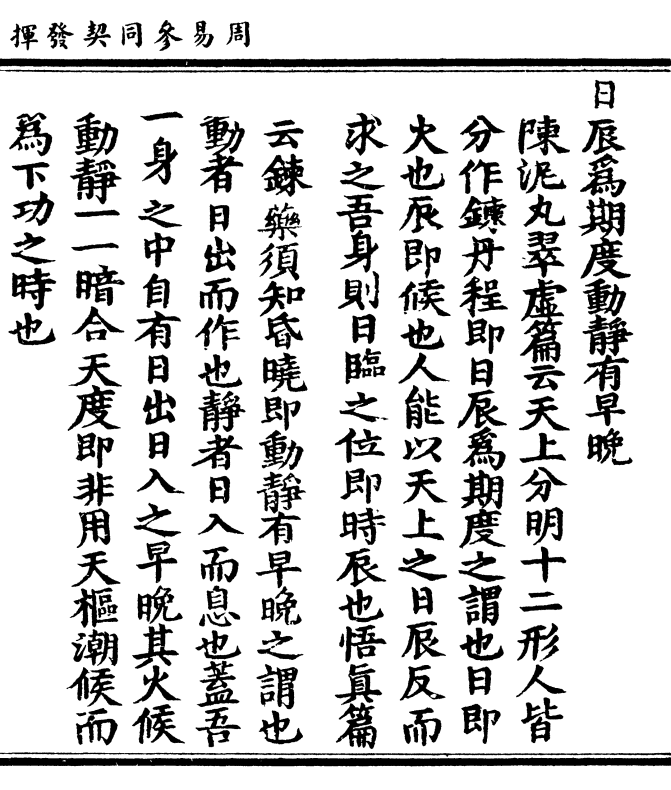 周易參同契發揮
日辰爲期度動靜有早晚
陳泥丸翠虛篇云天上分明十二形人皆
分作鍊丹程即日辰爲期度之謂也日即
火也辰即候也人能以天上之日辰反而
求之吾身則日臨之位即時辰也悟眞篇
云鍊藥須知昏曉即動靜有早晚之謂也
動者日出而作也靜者日入而息也蓋吾
一身之中自有日出日入之早晚其火候
動靜一一暗合天度即非用天樞潮候而
爲下功之時也